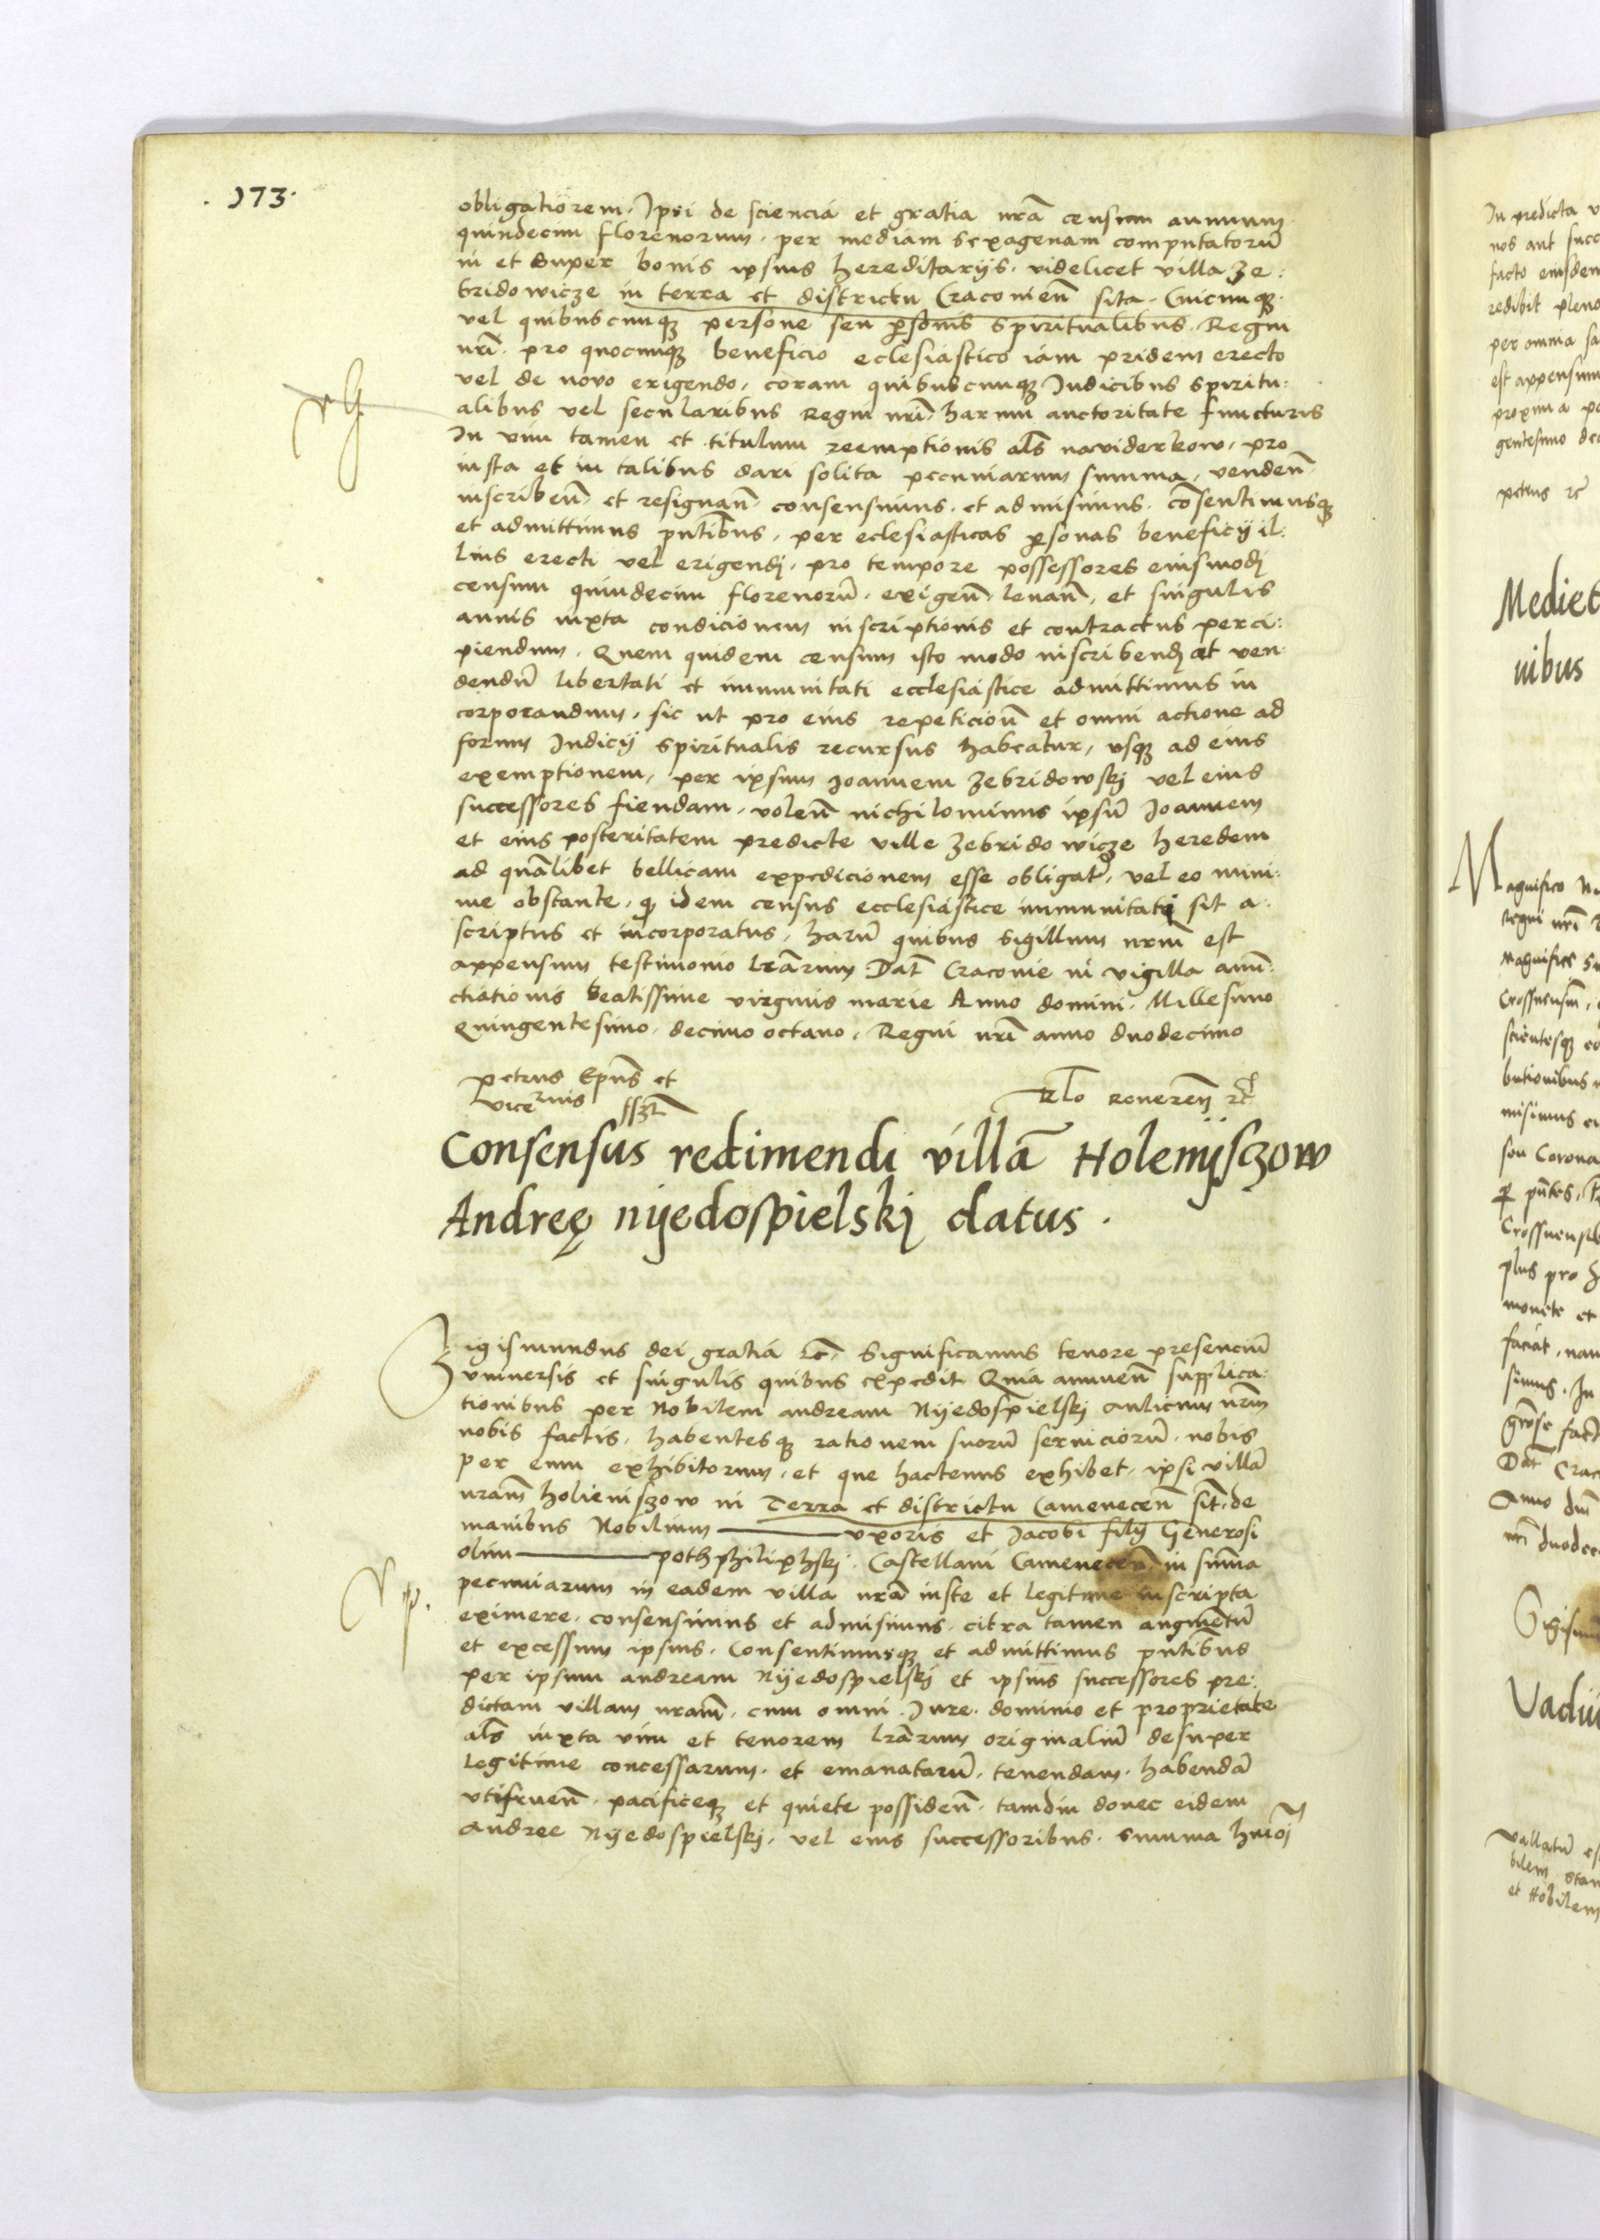 . 173 .
obligatiorem. Ipsi de sciencia et gratia nrã censum annuum
quindecim florenorum. per mediam sexagenam computatorũ
in et super bonis ipsius hereditarijs. videlicet villa Ze:
bridowicze in terra et districtu Cracovieñ sita. Cuicunqȝ
vel quibuscunqȝ persone seu ꝑsonis spiritualibus. Regni
nrĩ. pro quocunqȝ beneficio eclesiastico iam pridem erecto
vel de novo erigendo, coram quibuscunqȝ Judicibus spiritu:
alibus vel secularibus Regni nrĩ. harum auctoritate functuris
In vim tamen et titulum reemptionis als̃ naviderkow. pro
iusta et in talibus dari solita pecuniarum summa, vendeñ
inscribeñ. et resignañ. consensimus. et admisimus. cõsentimusqȝ
et admittimus pñtibus. per eclesiasticas ꝑsonas beneficij il:
lius erecti vel erigendj. pro tempore possessores eiusmodj
censum quindecim florenorũ. exigeñ. levañ. et singulis
annis iuxta condicionem inscriptionis et contractus perci:
piendum. Quem quidem censum isto modo inscribendj et ven:
dendũ libertati et immunitati ecclesiastice admittimus in
corporandum. sic ut pro eius repeticioñ et omni actione ad
forum Judicij spiritualis recursus habeatur, usqȝ ad eius
exemptionem, per ipsum Joannem Zebridowskj vel eius
successores fiendam. voleñ nichilominus ipsũ Joannem
et eius posteritatem predicte ville Zebridowicze heredem
ad quãlibet bellicam expedicionem esse obligat̃, vel eo mini:
me obstante, qȝ idem census ecclesiastice immunitati sit a:
scriptus et incorporatus, harũ quibus Sigillum nrm̃ est
appensum testimonio lr̃arum Dat̃ Cracovie in vigilia anũ:
ctiationis beatissime virginis marie Anno domini. Millesimo
Quingentesimo. decimo octavo. Regni nrĩ anno duodecimo
petrus Ep̃us et
Rl̃o Reverenj rc̃
Consensus redimendi villã Holenijsczow
Andreę nijedospielskj datus .
Sigismundus dei gratia rc̃. Significamus tenore presenciũ
Universis et singulis quibus expedit Quia annueñ supplica:
tionibus per Nobilem andream Nijedospielskj aulicum nrm̃
nobis factis. habentesqȝ rationem suorũ serviciorũ. nobis
per eum exhibitorum. et que hactenus exhibet. ipsi villã
nram̃ holienisczow in Terra et districtu Cameneceñ sit̃. de
manibus Nobilium ——— uxoris et Jacobi filij Generosi
olim ——— pothphiliphskj. Castellani Cameneceñ. in sum̃a
pecuniarum in eadem villa nrã iuste et legitime inscripta
eximere. consensimus et admisimus. citra tamen augmẽtũ
et excessum ipsius. Consentimusqȝ et admittimus pñtibus
per ipsum andream Nijedospielskj et ipsius successores pre:
dictam villam nram̃. cum omni. Jure. dominio et proprietate
als̃ iuxta vim et tenorem lr̃arum originaliũ desuper
legitime concessarum. et emanatarũ. tenendam. habendã
utifrueñ. pacificeqȝ et quiete possideñ. tamdiu donec eidem
andree Nijedospielskj. vel eius successoribus. summa hm̃oj